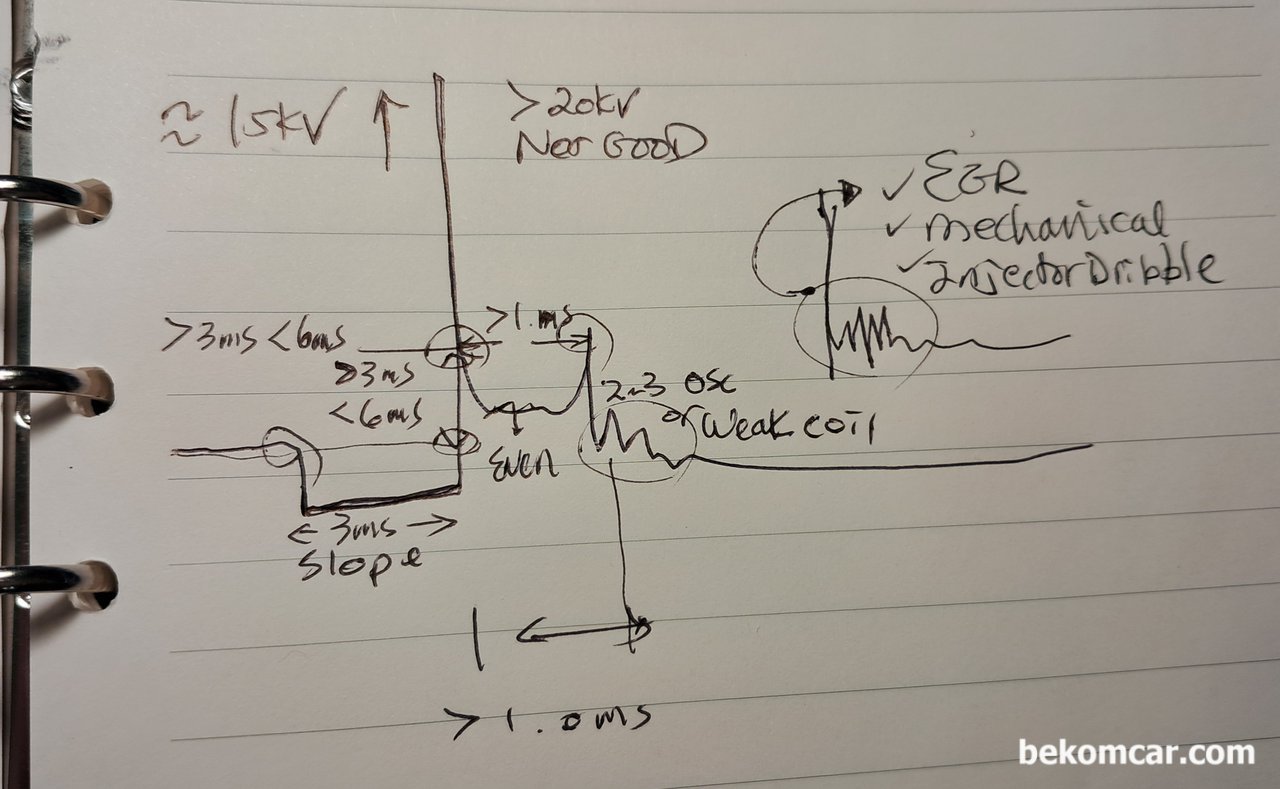 ≈ 15kV ↑
>20kV
Not GOOD
✓ EGR
✓ mechanical
✓ Injector Dribble
>3ms <6ms
>1.ms
>3ms
<6ms
2~3 osc
or Weak coil
Even
← 3ms →
Slope
>1.0ms
bekomcar.com